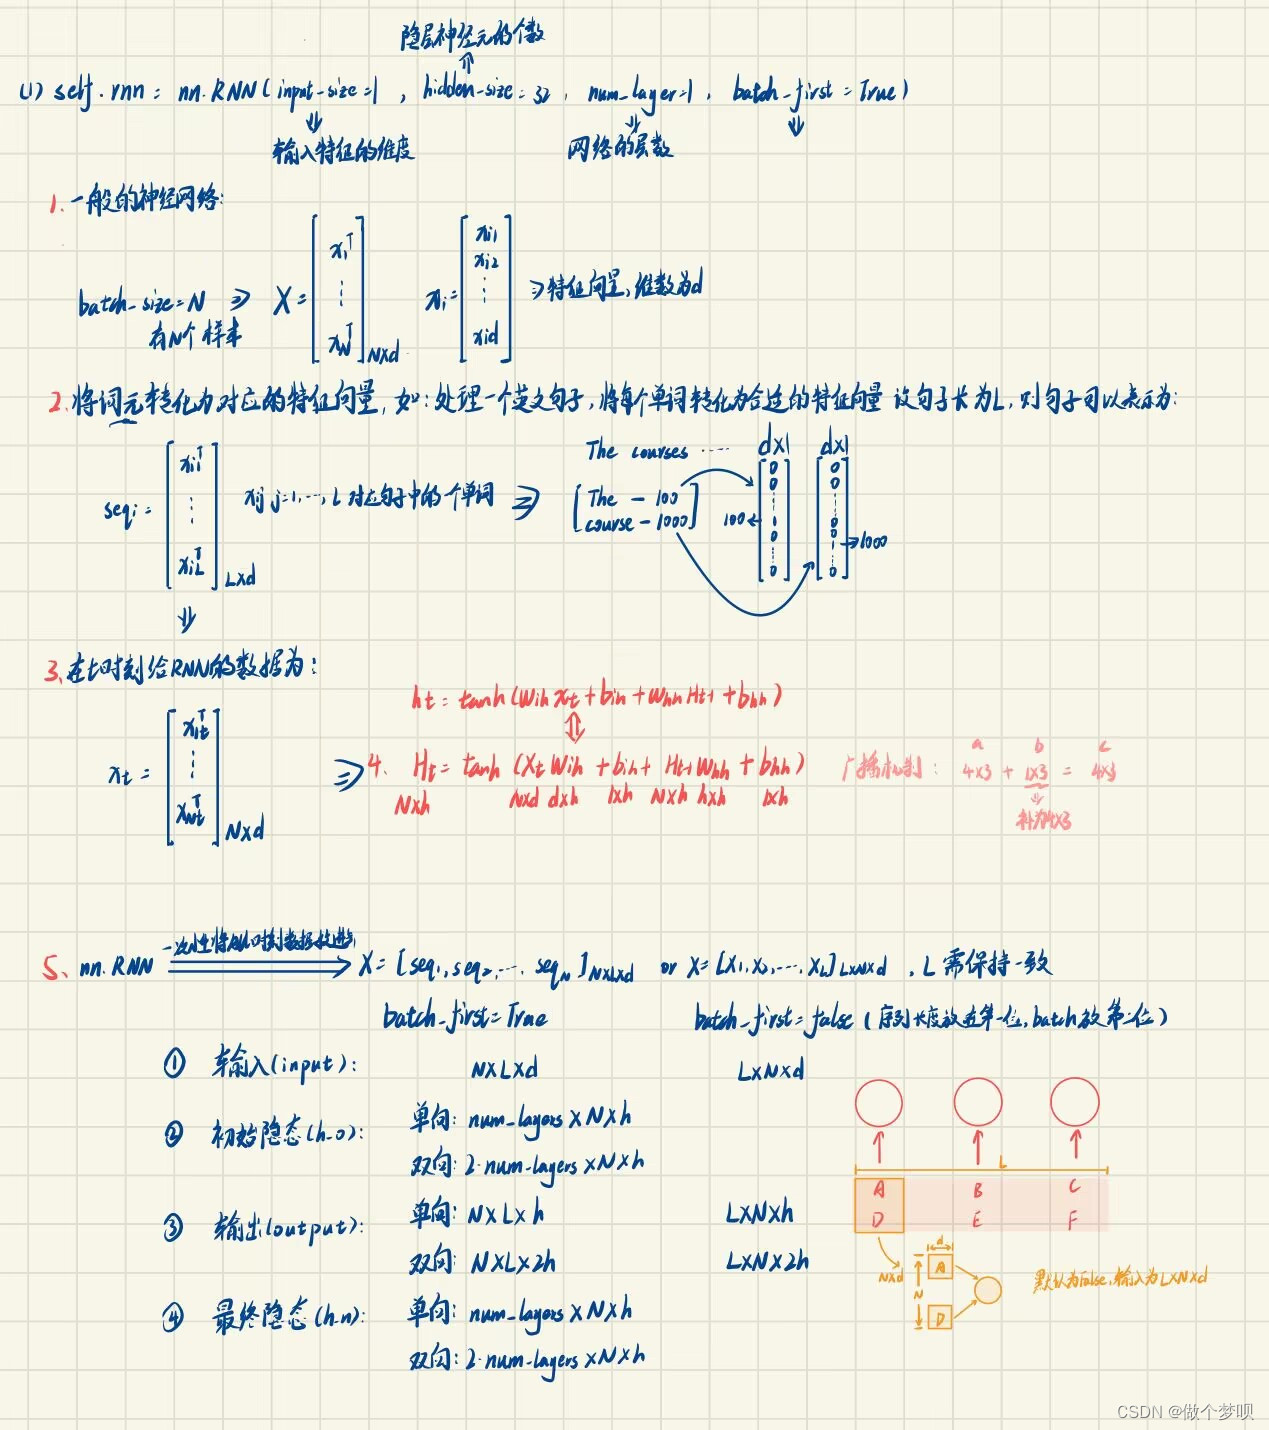 隐层神经元的个数
(1) self.rnn = nn.RNN(input_size=1, hidden_size=32, num_layer=1, batch_first=True)
输入特征的维度 网络的层数
1. 一般的神经网络:
batch_size=N ⇒ X = [x₁ᵀ ⋮ x_Nᵀ] N×d xᵢ = [xi1 xi2 ⋮ xid] ⇒特征向量,维数为d
有N个样本
2. 将词元转化为对应的特征向量,如:处理一个英文句子,将每个单词转化为合适的特征向量 设句子长为L,则句子可以表示为:
The courses ······ d×1 d×1
seqᵢ = [xi1ᵀ ⋮ xiLᵀ] L×d xij j=1,···,L 对应句子中的一个单词 ⇒ [The - 100
course - 1000]
100← [0 0 ⋮ 1 0 ⋮ 0] [0 0 ⋮ 0 0 1 ⋮ 0] →1000
3. 在t时刻给RNN的数据为:
xt = [x1tᵀ ⋮ xNtᵀ] N×d
ht = tanh(Wih xt + bih + Whh Ht-1 + bhh)
⇒ 4. Ht = tanh (Xt Wih + bih + Ht-1 Whh + bhh)
N×h N×d d×h 1×h N×h h×h 1×h
a b c
广播机制: 4×3 + 1×3 = 4×3
补为4×3
5. nn.RNN 一次性将所有时刻数据放进去 X = [seq₁, seq₂, ···, seq_N] N×L×d or X = [X₁, X₂, ···, X_L] L×N×d , L需保持一致
batch_first=True batch_first=false (序列长度放在第一位, batch放第二位)
① 输入(input): N×L×d L×N×d
② 初始隐态(h_0): 单向: num_layers×N×h
双向: 2·num_layers×N×h
③ 输出(output): 单向: N×L×h L×N×h
双向: N×L×2h L×N×2h
④ 最终隐态(h_n): 单向: num_layers×N×h
双向: 2·num_layers×N×h
L
A B C
D E F
N×d
d
N
A
D
默认为False,输入为L×N×d
CSDN @做个梦呗